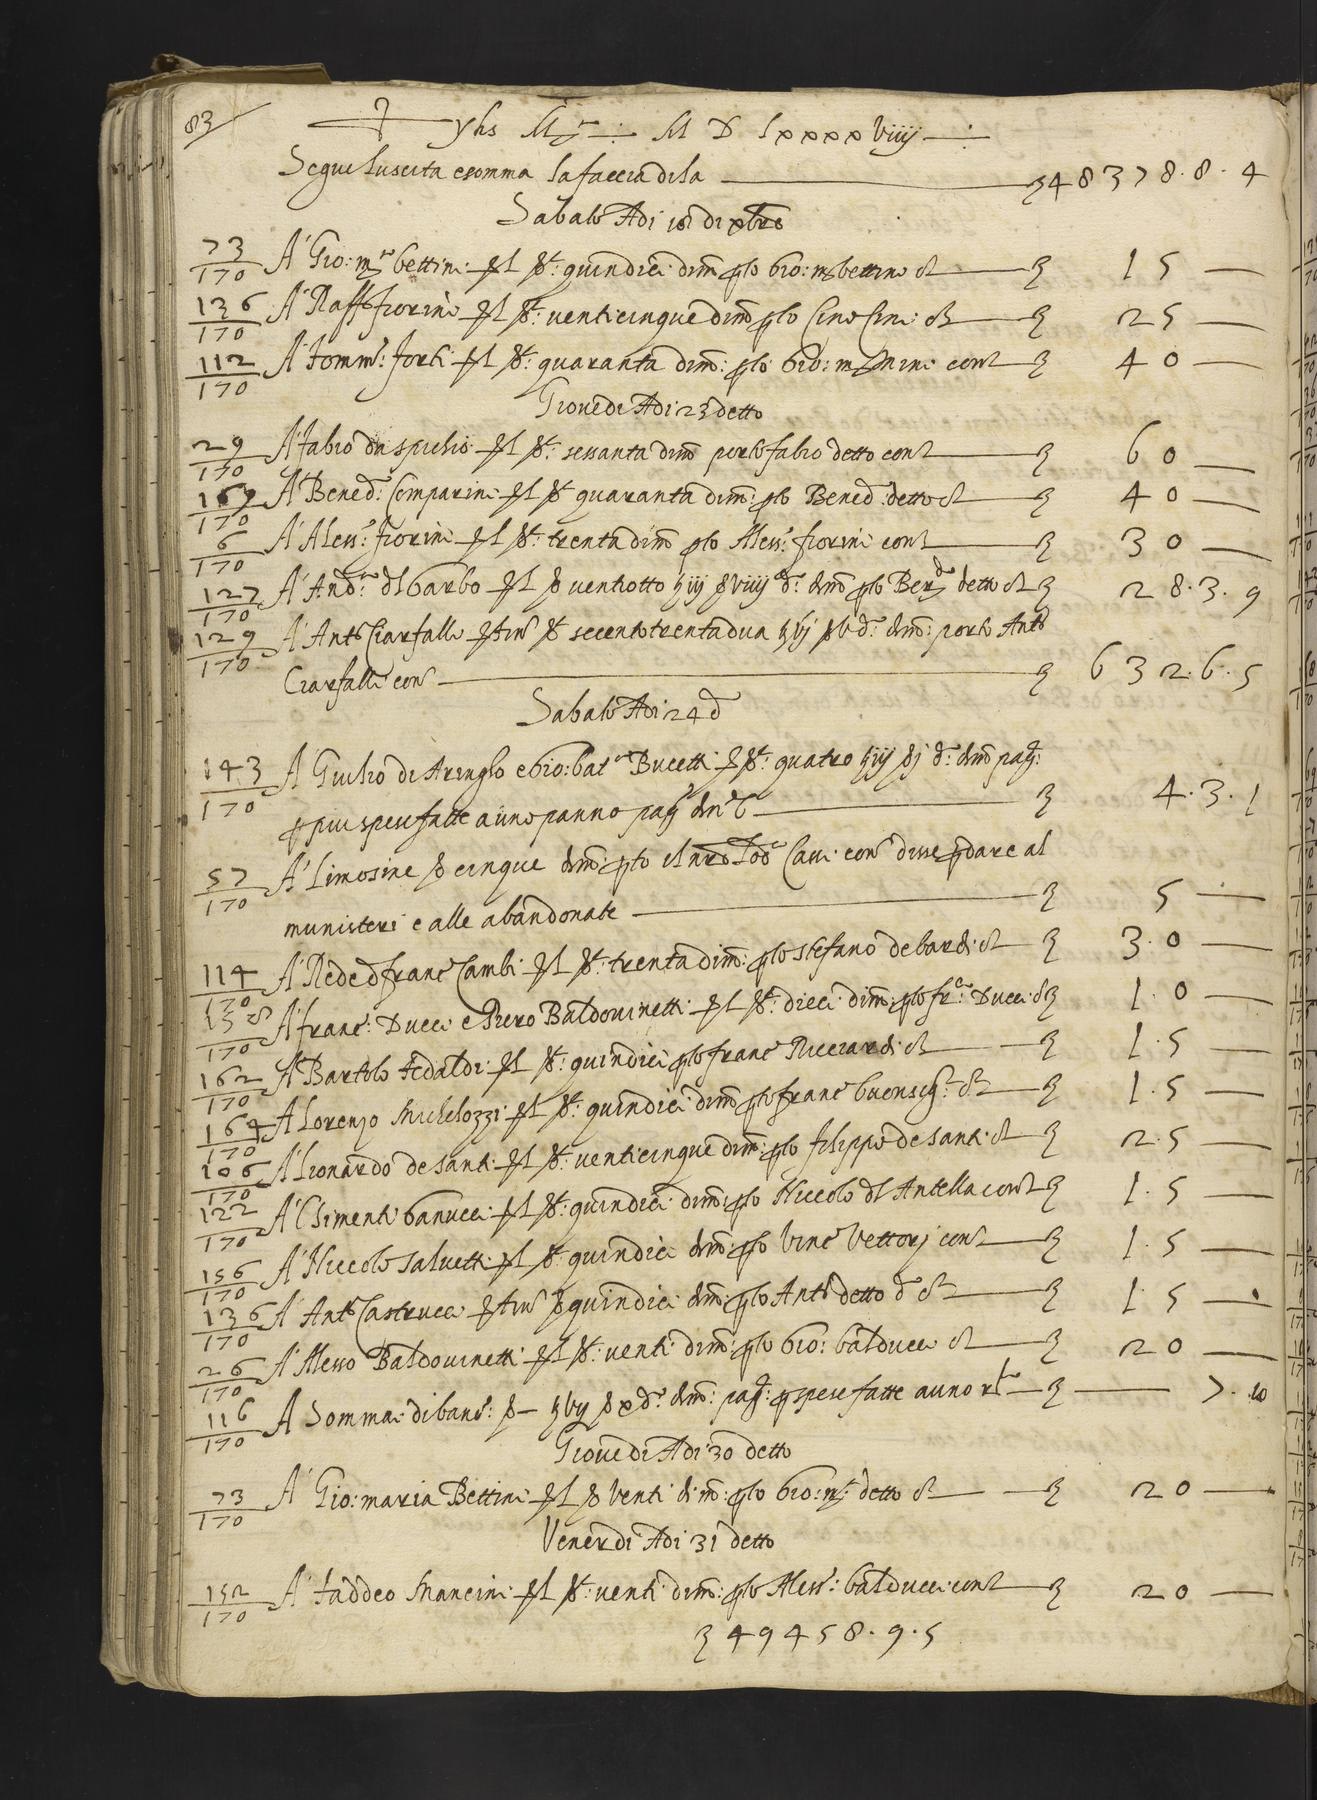 83
yhs Mª M D Lxxxxviiij
Segue luscita e somma la faccia di la 48378.8.4
Sabato Adi 18 di xbre
73/170 A Gio: mª bettini quindici dim° plo Gio: mª bettini 15 —
136/170 A Raff° fiorini venticinque dim° plo Cino Cini 25 —
112/170 A Tomm°: forti quaranta dim°: plo Gio: mª Nini cont 40 —
Giovedi Adi 23 detto
29/170 A fabio da spichio sessanta dim° porto fabio detto cont 60 —
169/170 A Bened°: Comparini quaranta dim°: plo Bened° detto 40 —
6/170 A Aless°: fiorini trenta dim° plo Aless°: fiorini cont 30 —
127/170 A And.ª dl barbo ventiotto iij viiij d: dim° plo Ber detto 28.3.9
129/170 A Ant° Ciarfalli secento trentadua vj v d: dim°: porto Ant°
Ciarfalli cont 632.6.5
Sabato Adi 24 d
143/170 A Giulio di Aringho e Gio: bat.ª Bucetti quatro iij j d: dim° pag:
p piu spese fatte a uno panno pag 4.3.1
57/170 A Limosine cinque dim°: plo il Cavi cont disse p dare al
munisteri e alle abandonate 5 —
114/170 A Rede d franc° Cambi trenta dim°: plo stefano de bardi 30 —
138/170 A franc°: Ducci e Piero Baldovinetti dieci dim°: plo fr°: Ducci 10 —
162/170 A Bartolo Tedaldi quindici plo franc° Ricciardi 15 —
164/170 A Lorenzo Michelozzi quindici dim° plo franc° buonsig 15 —
106/170 A Lionardo de santi venticinque dim°: plo filippo de santi 25 —
122/170 A Chimenti banucci quindici dim°: plo Niccolo dl Antella cont 15 —
156/170 A Niccolo salvetti quindici dim°: plo vinc° vettorj cont 15 —
136/170 A Ant° Castrucci quindici dim°: plo Ant° detto d 15 —
26/170 A Alesso Baldovinetti venti dim°: plo Gio: balducci 20 —
116/170 A Somma: di banc°: — vij x d: dim°: pag: p spese fatte a uno — 7.10
Giovedi Adi 30 detto
73/170 A Gio: maria Bettini venti dim°: plo Gio: mª: detto 20 —
Venerdi Adi 31 detto
152/170 A Taddeo Mancini venti dim°: plo Aless°: balducci cont 20 —
49458.9.5